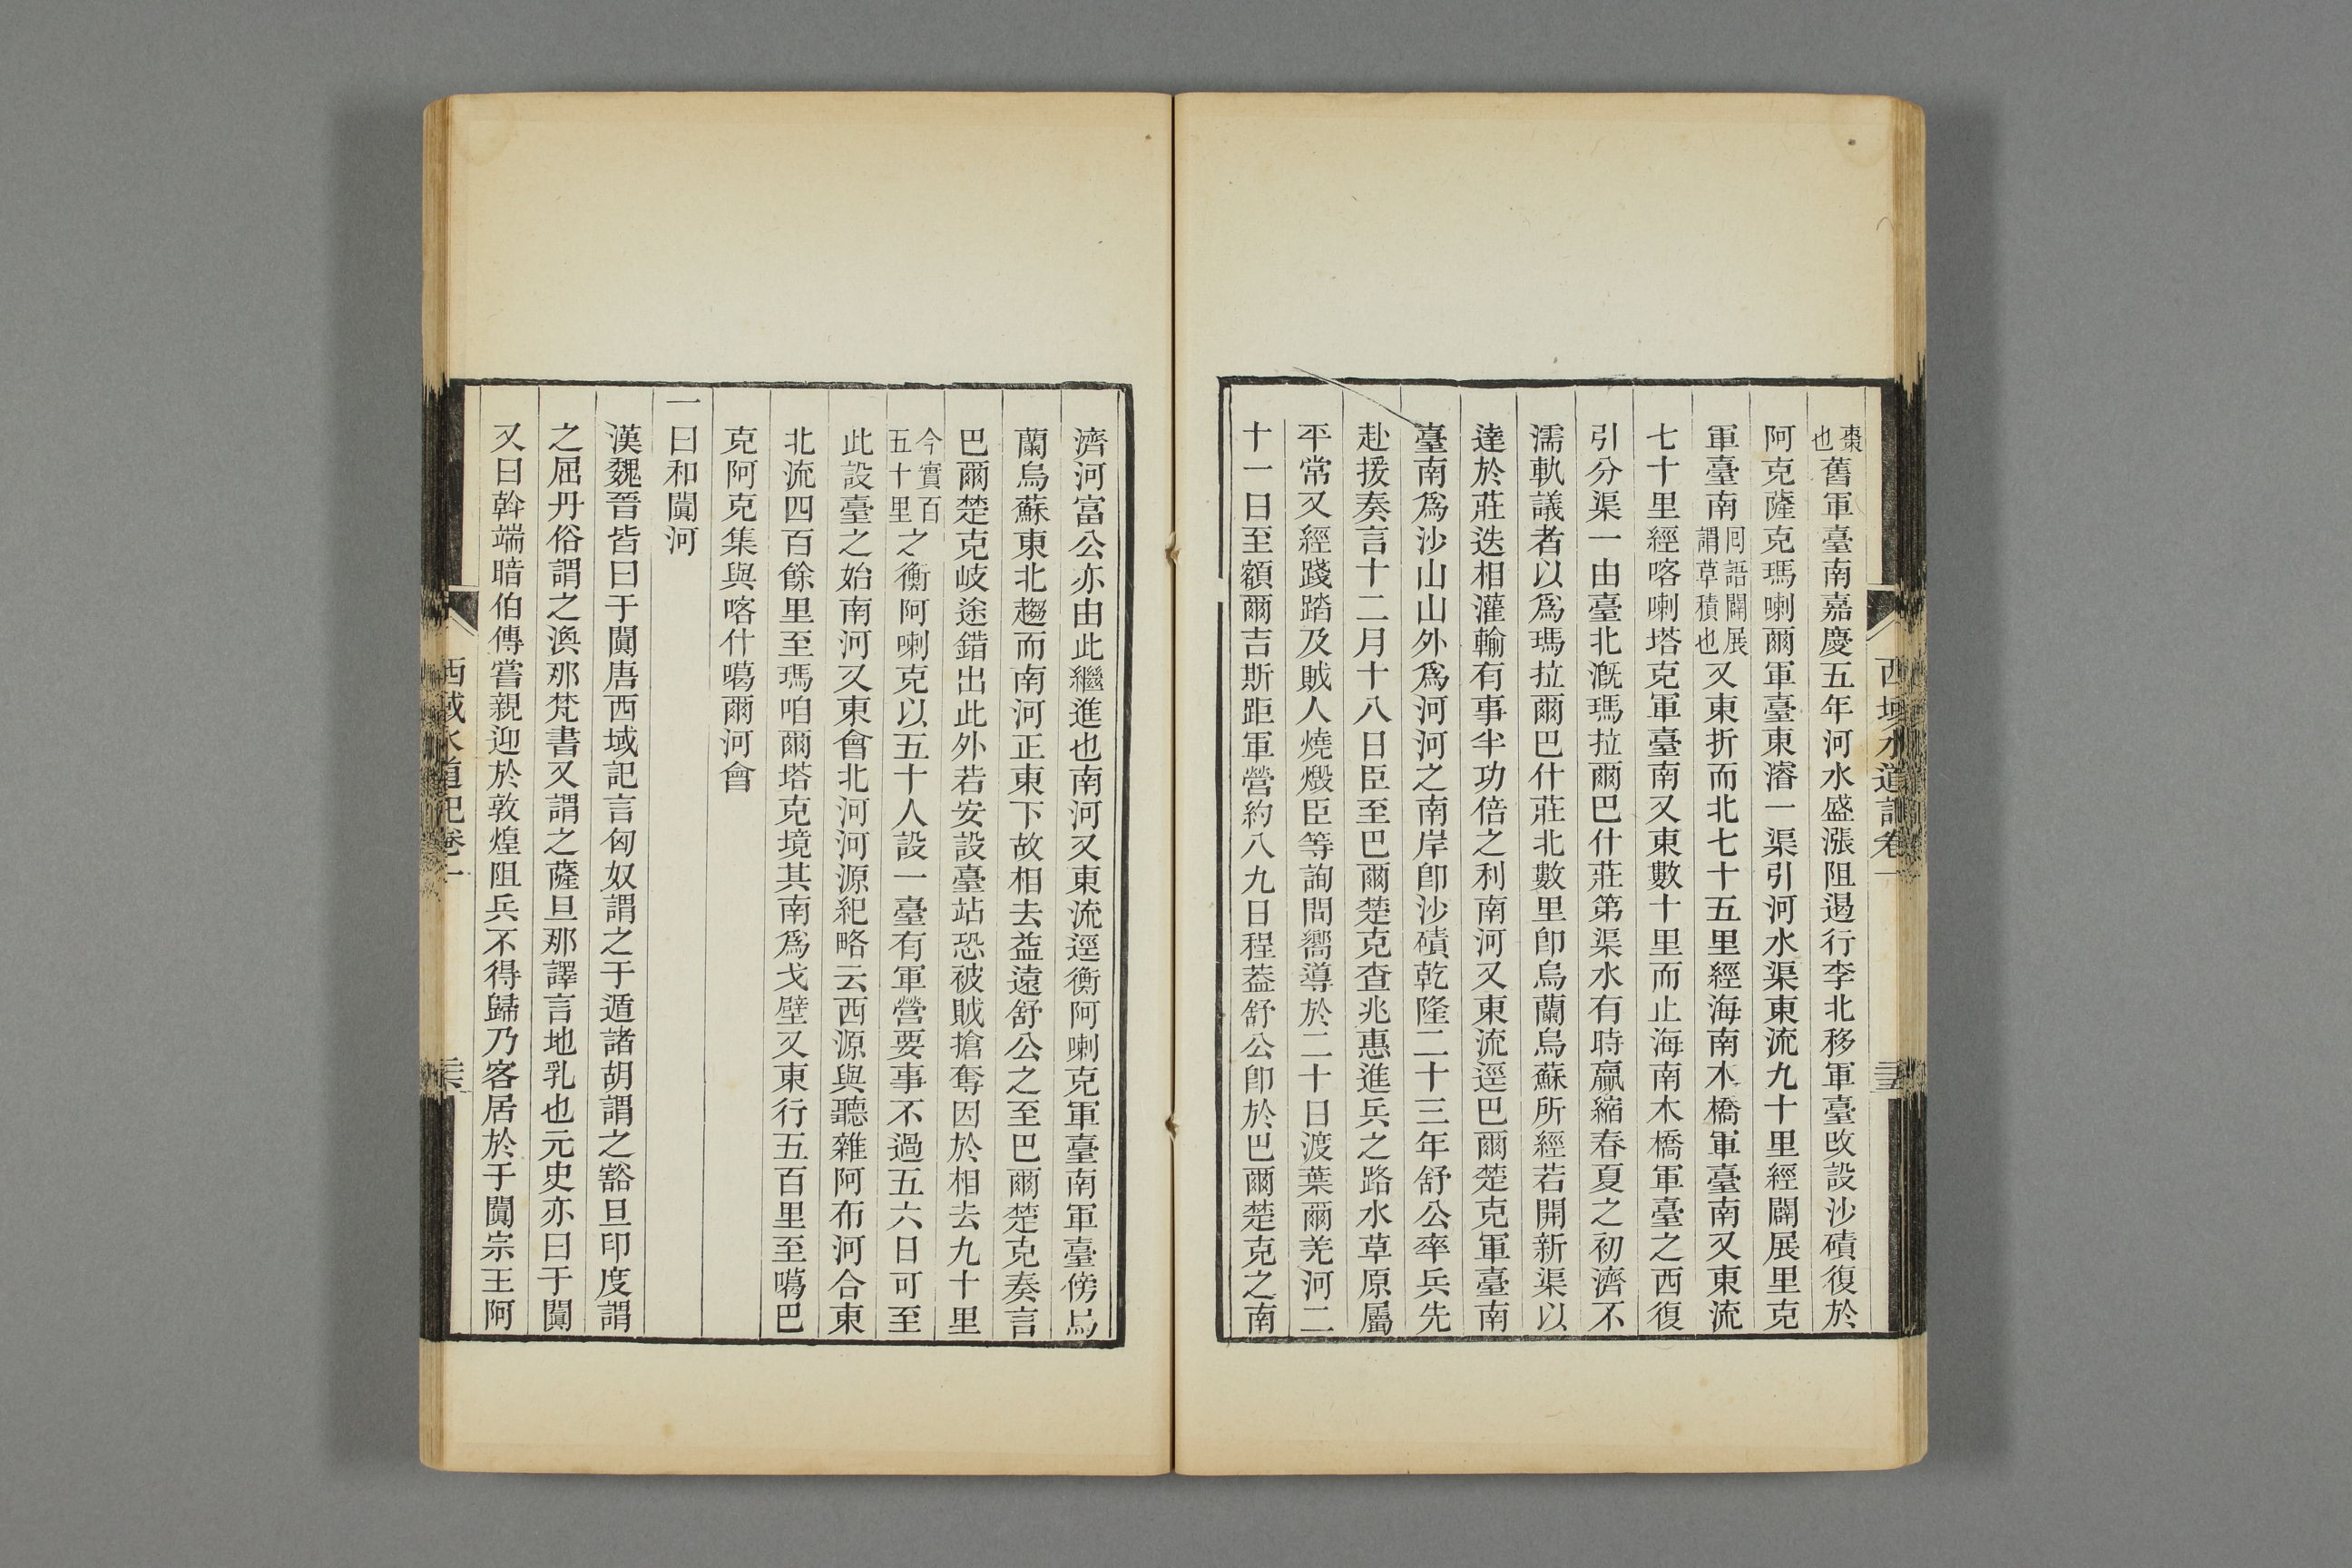 西域水道記卷一
棗也舊軍臺南嘉慶五年河水盛漲阻遏行李北移軍臺改設沙磧復於
阿克薩克瑪喇爾軍臺東濬一渠引河水渠東流九十里經闢展里克
軍臺南回語闢展謂草積也又東折而北七十五里經海南木橋軍臺南又東流
七十里經喀喇塔克軍臺南又東數十里而止海南木橋軍臺之西復
引分渠一由臺北漑瑪拉爾巴什莊第渠水有時贏縮春夏之初濟不
濡軌議者以爲瑪拉爾巴什莊北數里卽烏蘭烏蘇所經若開新渠以
達於莊迭相灌輸有事半功倍之利南河又東流逕巴爾楚克軍臺南
臺南爲沙山山外爲河河之南岸卽沙磧乾隆二十三年舒公率兵先
赴援奏言十二月十八日臣至巴爾楚克查兆惠進兵之路水草原屬
平常又經踐踏及賊人燒燬臣等詢問嚮導於二十日渡葉爾羌河二
十一日至額爾吉斯距軍營約八九日程葢舒公卽於巴爾楚克之南
濟河富公亦由此繼進也南河又東流逕衡阿喇克軍臺南軍臺傍烏
蘭烏蘇東北趨而南河正東下故相去益遠舒公之至巴爾楚克奏言
巴爾楚克岐途錯出此外若安設臺站恐被賊搶奪因於相去九十里
今實百五十里之衡阿喇克以五十人設一臺有軍營要事不過五六日可至
此設臺之始南河又東會北河河源紀略云西源與聽雜阿布河合東
北流四百餘里至瑪咱爾塔克境其南爲戈壁又東行五百里至噶巴
克阿克集與喀什噶爾河會
一曰和闐河
漢魏晉皆曰于闐唐西域記言匈奴謂之于遁諸胡謂之豁旦印度謂
之屈丹俗謂之渙那梵書又謂之薩旦那譯言地乳也元史亦曰于闐
又曰斡端暗伯傳嘗親迎於敦煌阻兵不得歸乃客居於于闐宗王阿
西域水道記卷一